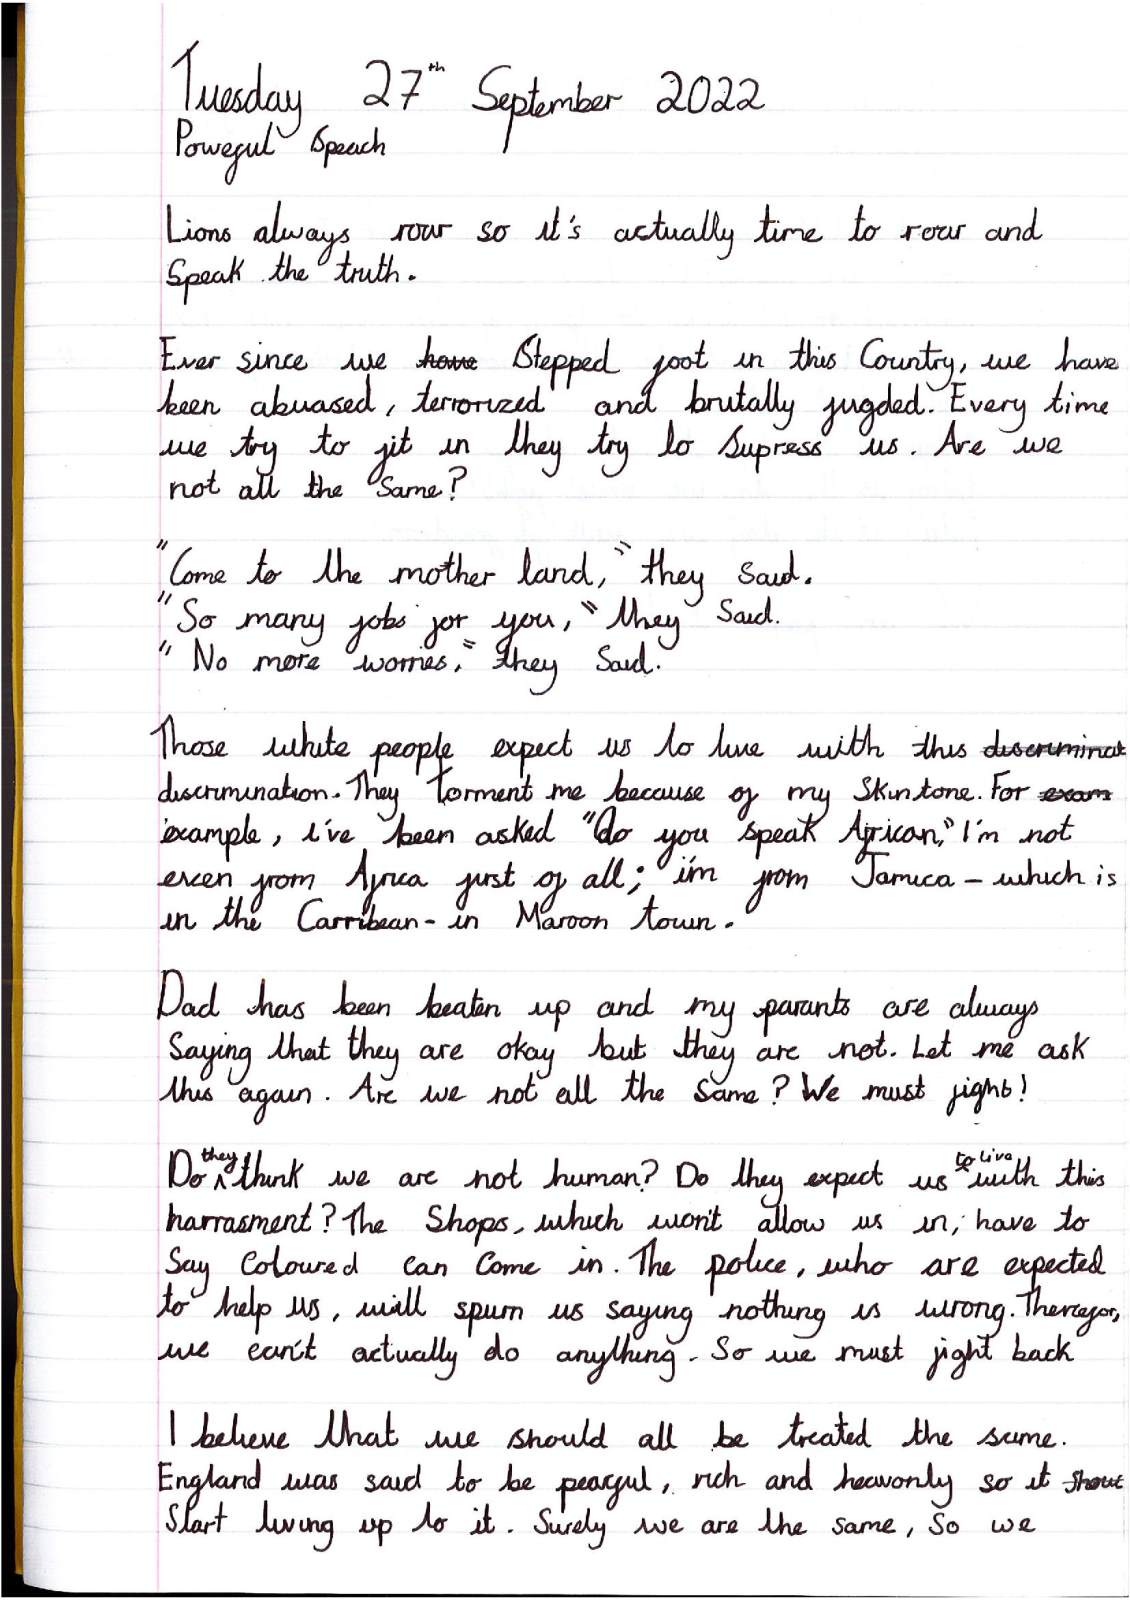 Tuesday 27th September 2022
Powegul Speach
Lions always roar so it's actually time to roar and
Speak the truth.
Ever since we have Stepped foot in this Country, we have
been abuased, terrorized and brutally jugded. Every time
we try to fit in they try to Supress us. Are we
not all the Same?
"Come to the mother land," they Said.
"So many jobs for you," they Said.
"No more worries," they Said.
Those white people expect us to live with this discriminat
discrimination. They torment me because of my Skintone. For exam
example, i've been asked "do you speak African," I'm not
even from Africa just of all; i'm from Jamica - which is
in the Carribean - in Maroon town.
Dad has been beaten up and my parants are always
Saying that they are okay but they are not. Let me ask
this again. Are we not all the Same? We must fight!
Do they think we are not human? Do they expect us to live with this
harrasment? The Shops, which won't allow us in, have to
Say Coloured can Come in. The police, who are expected
to help us, will spurn us saying nothing is wrong. Therefor,
we can't actually do anything. So we must fight back
I believe that we should all be treated the same.
England was said to be peaful, rich and heavonly so it shout
Start living up to it. Surely we are the same, So we